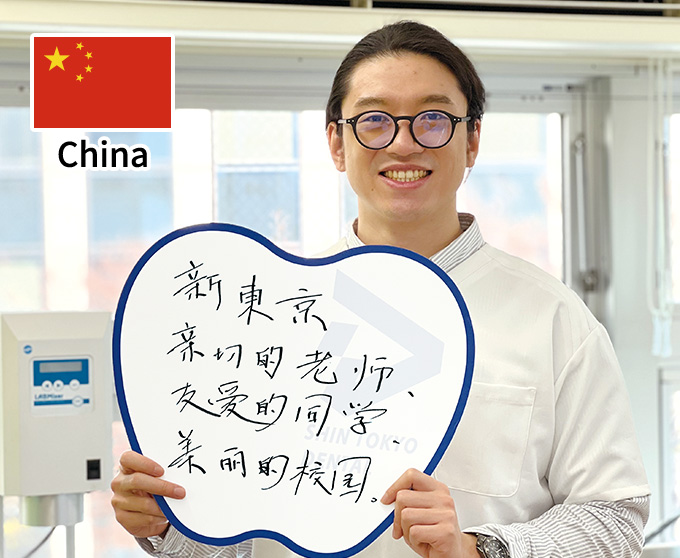 China
新東京
亲切的老师、
友爱的同学、
美丽的校园。
SHIN TOKYO
DENTAL